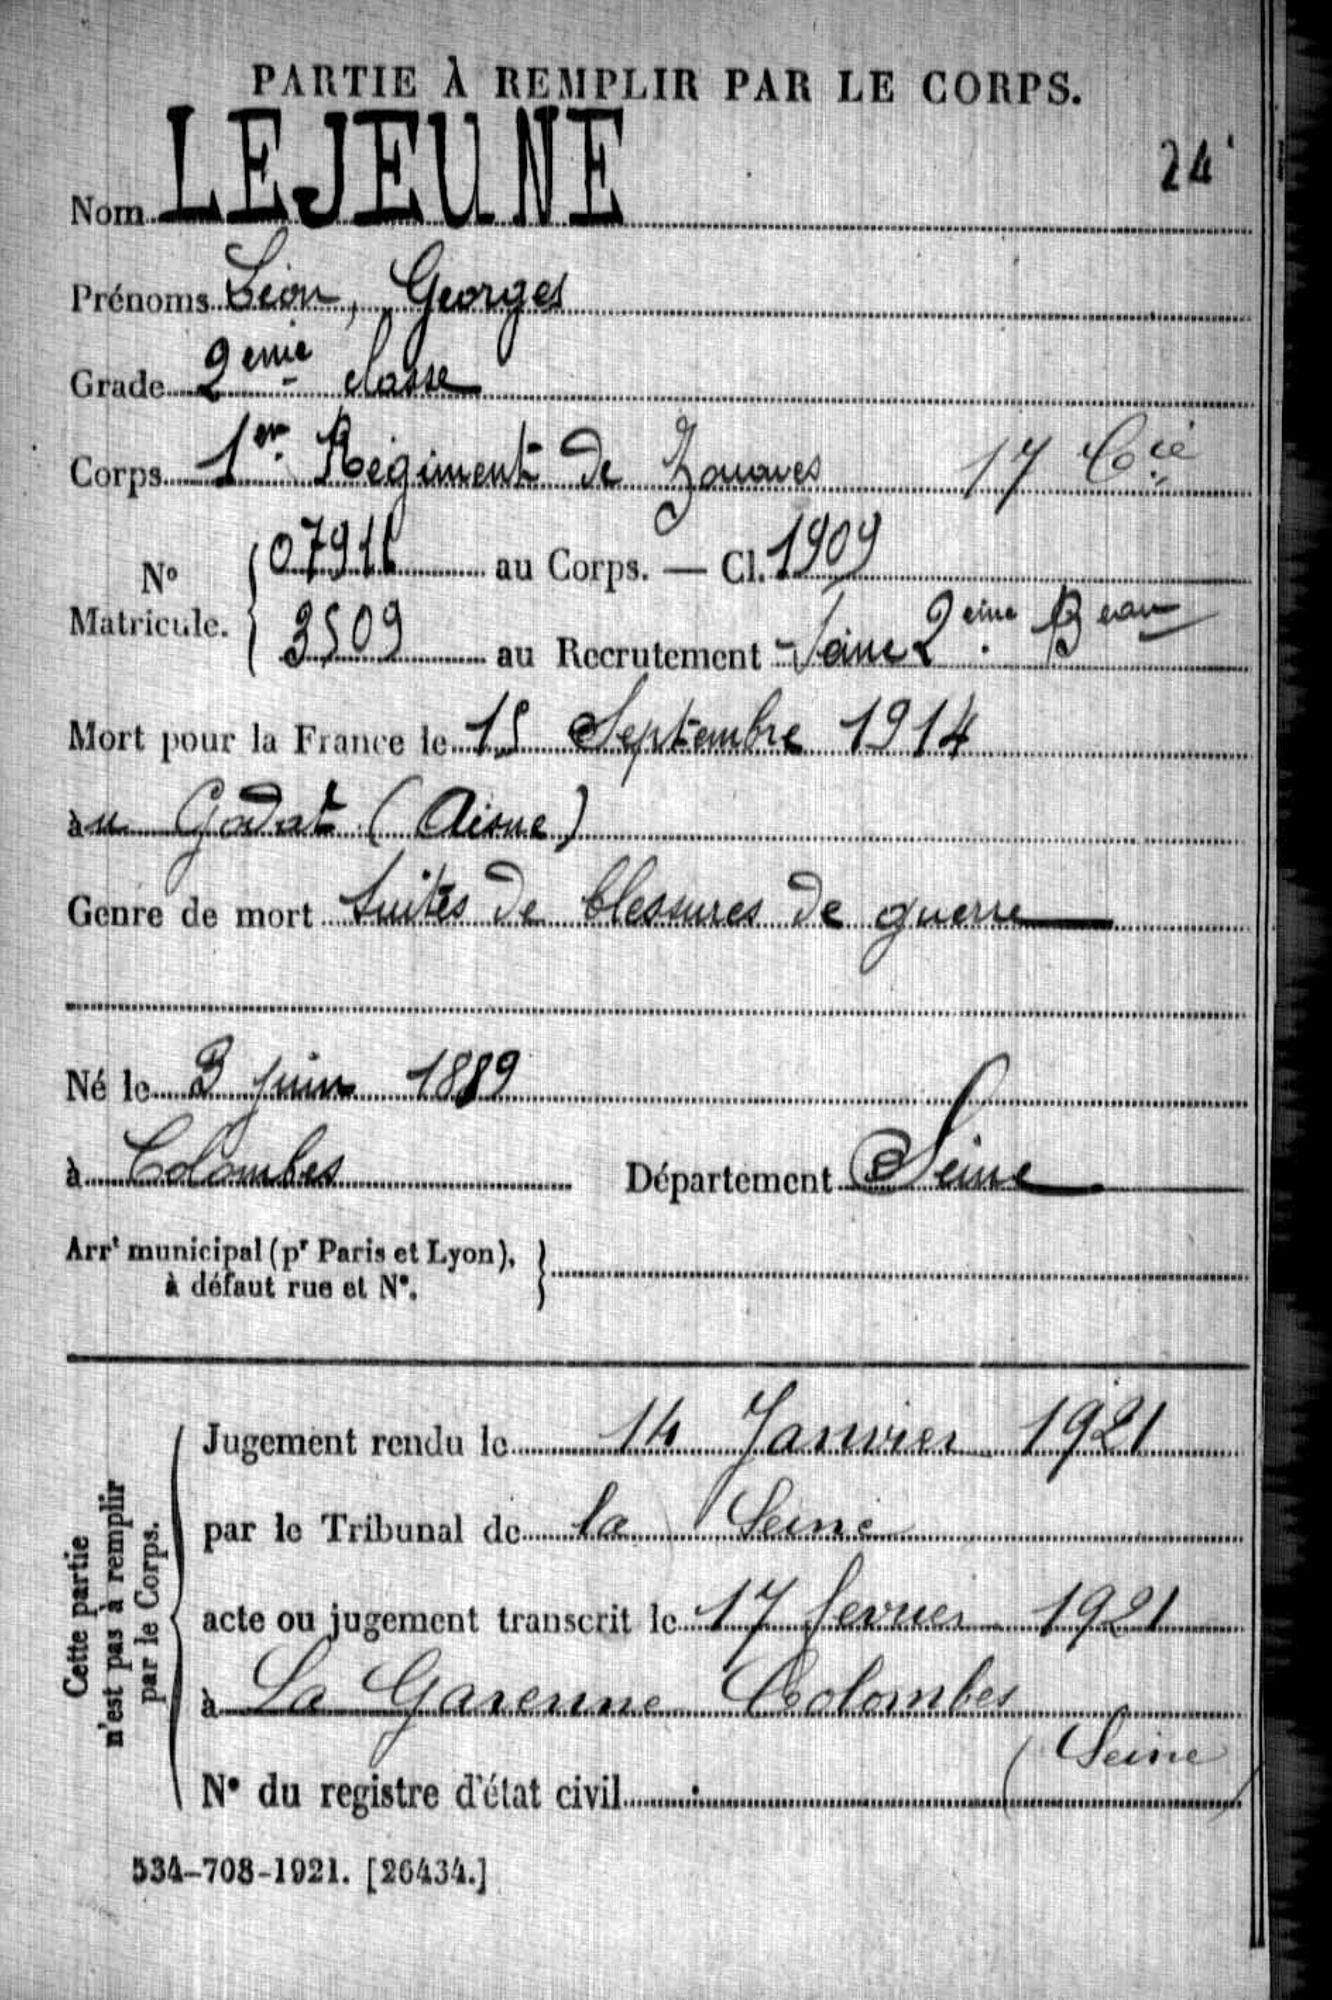 PARTIE À REMPLIR PAR LE CORPS.
24
Nom LEJEUNE
Prénoms Léon, Georges
Grade 2ème classe
Corps 1er Régiment de Zouaves 17 Cie
No Matricule. { 07916 au Corps. — Cl. 1909
3509 au Recrutement Seine 2ème Beau
Mort pour la France le 15 Septembre 1914
àu Godat (Aisne)
Genre de mort suites de blessures de guerre
Né le 3 juin 1889
à Colombes Département Seine
Arrt municipal (pr Paris et Lyon), }
à défaut rue et N°.
Cette partie
n'est pas à remplir
par le Corps.
Jugement rendu le 14 Janvier 1921
par le Tribunal de la Seine
acte ou jugement transcrit le 17 fevrier 1921
à La Garenne Colombes
(Seine)
N° du registre d'état civil
534-708-1921. [26434.]